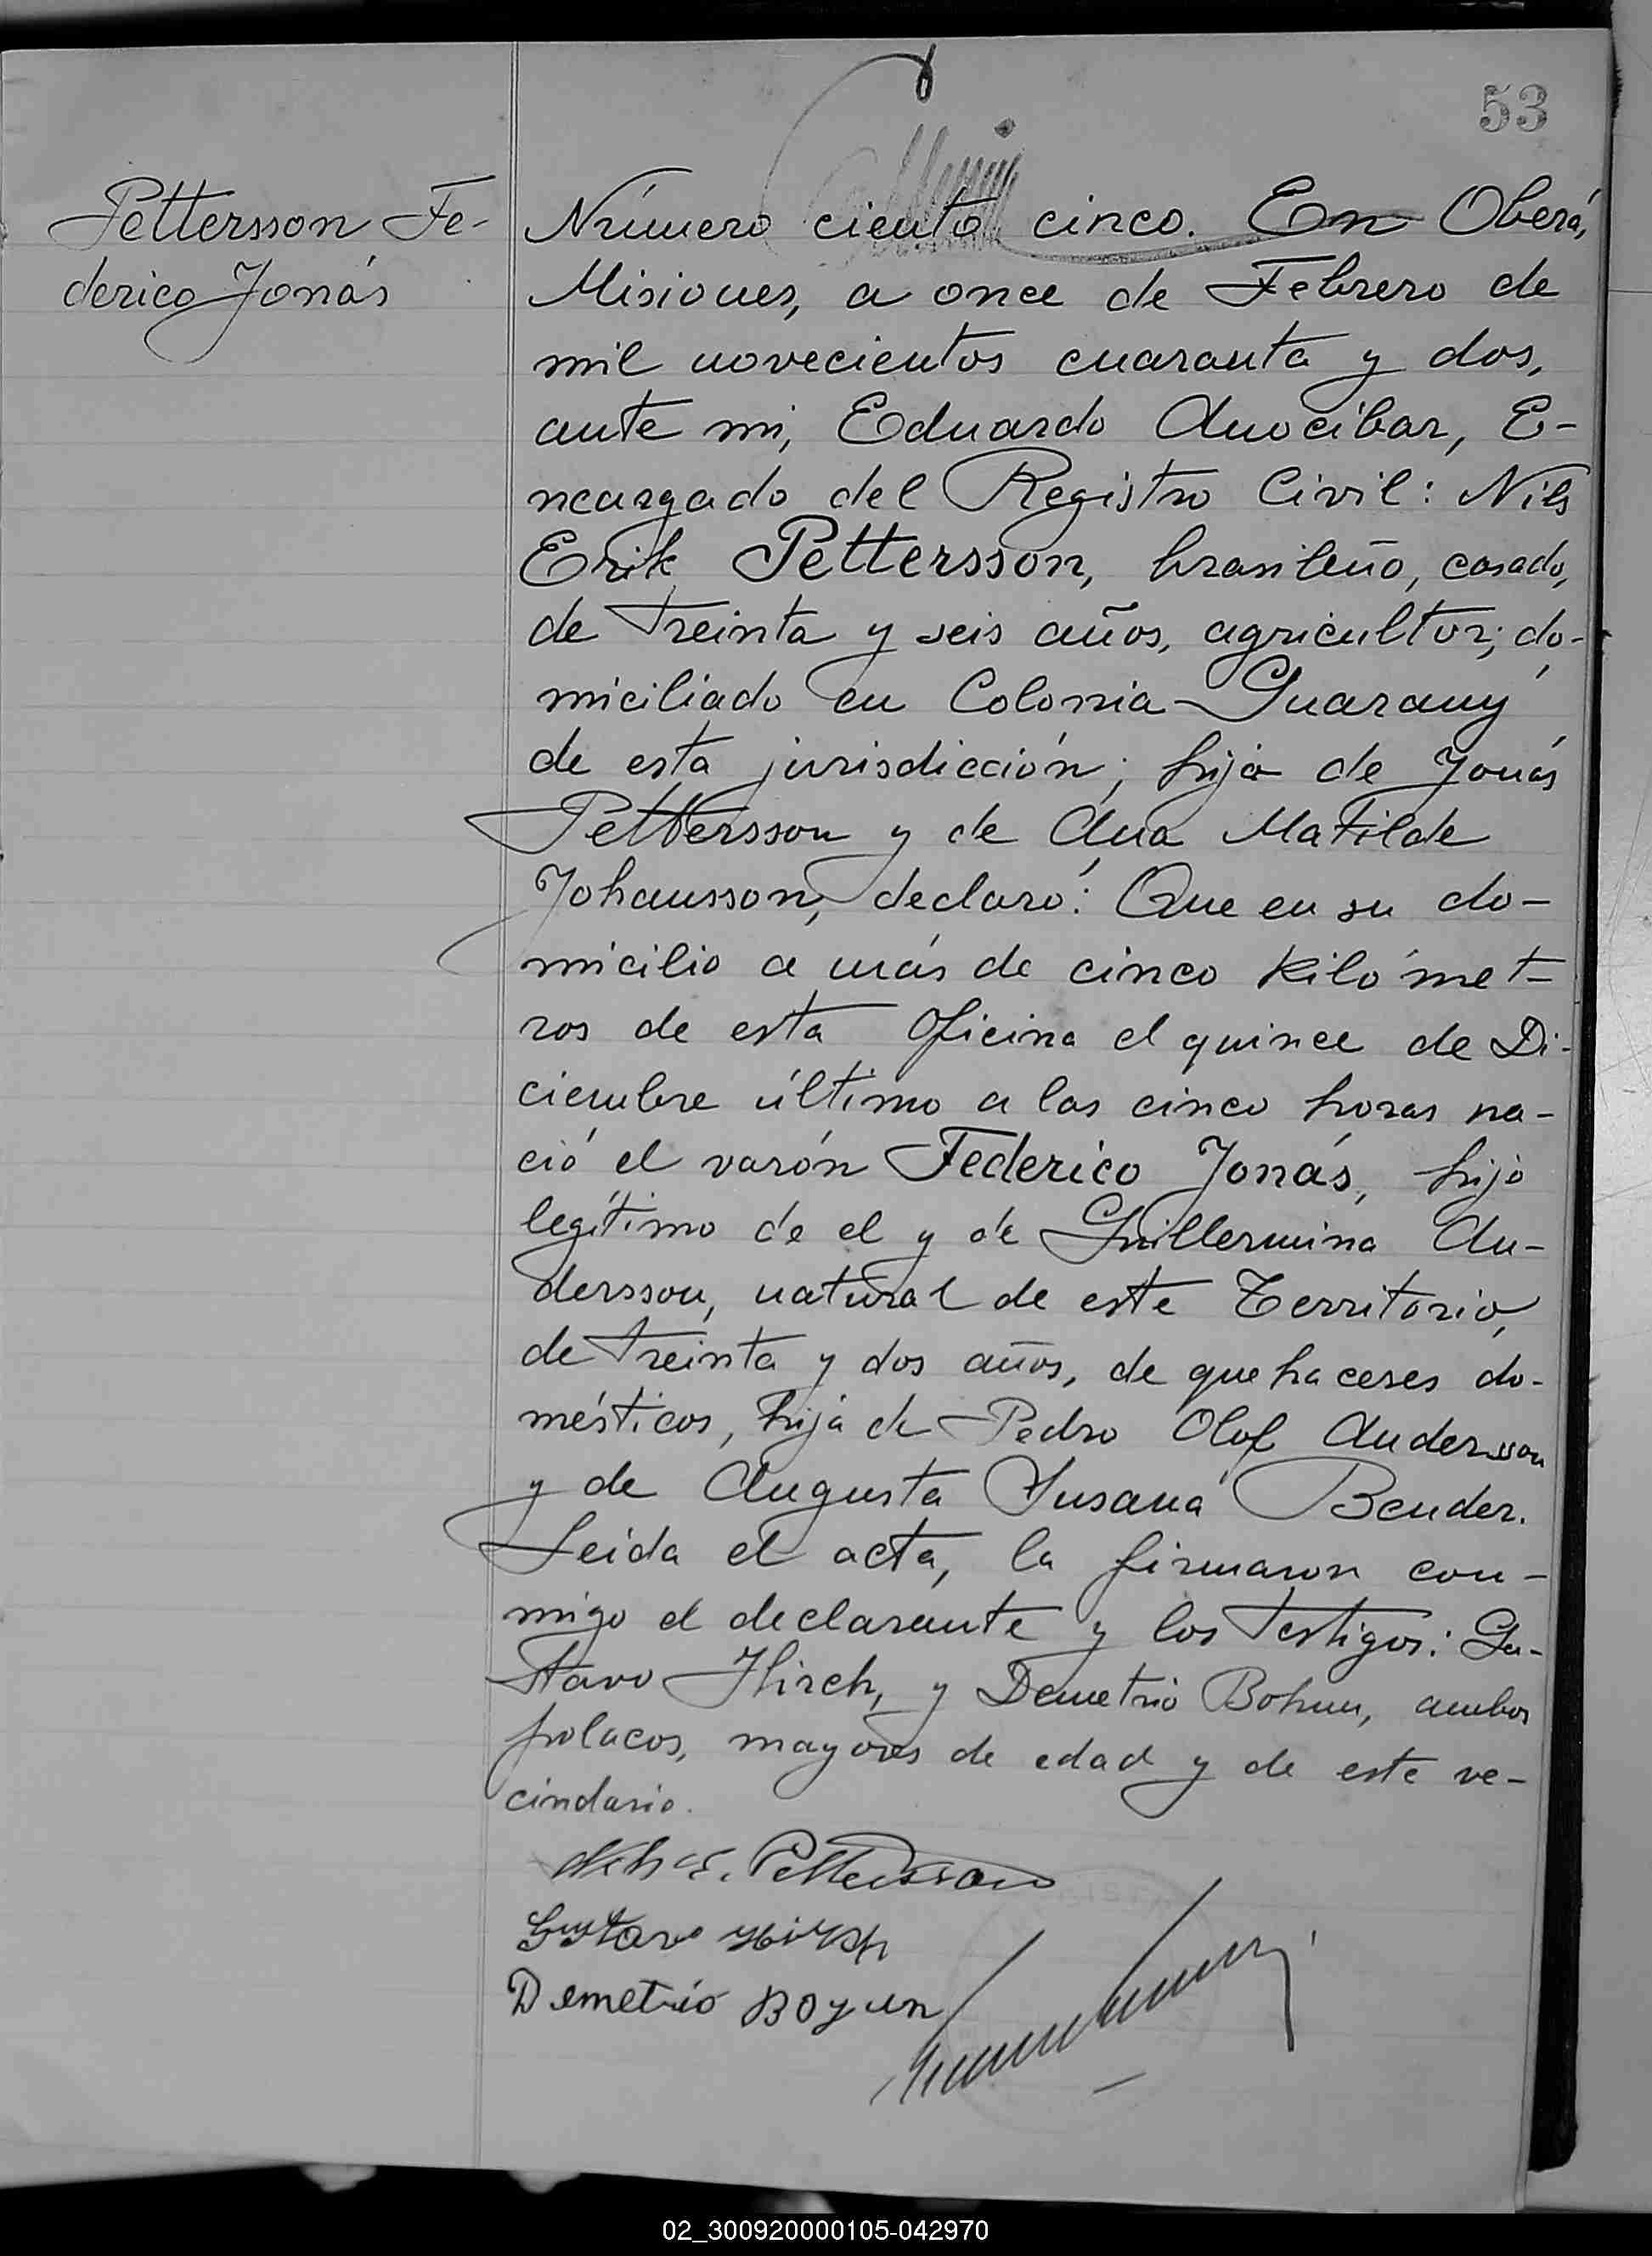 53
Pettersson Fe-
derico Jonás
Número ciento cinco. En Oberá,
Misiones, a once de Febrero de
mil novecientos cuaranta y dos,
ante mi, Eduardo Anocíbar, E-
ncargado del Registro Civil: Nils
Erik Pettersson, brasileño, casado,
de treinta y seis años, agricultor; do-
miciliado en Colonia Guarany
de esta jurisdicción; hijo de Jonás
Pettersson y de Ana Matilde
Johansson, declaró: Que en su do-
micilio a más de cinco kilómet-
ros de esta Oficina el quince de Di-
ciembre último a las cinco horas na-
ció el varón Federico Jonás, hijo
legítimo de el y de Guillermina An-
dersson, natural de este Territorio,
de treinta y dos años, de quehaceres do-
mésticos, hija de Pedro Olof Andersson
y de Augusta Susana Bender.
Leida el acta, la firmaron con-
migo el declarante y los testigos: Gu-
stavo Hirch, y Demetrio Bohun, ambos
polacos, mayores de edad y de este ve-
cindario.
Nils E. Pettersson
Gustavo Hirsh
Demetrio Boyun
02_300920000105-042970